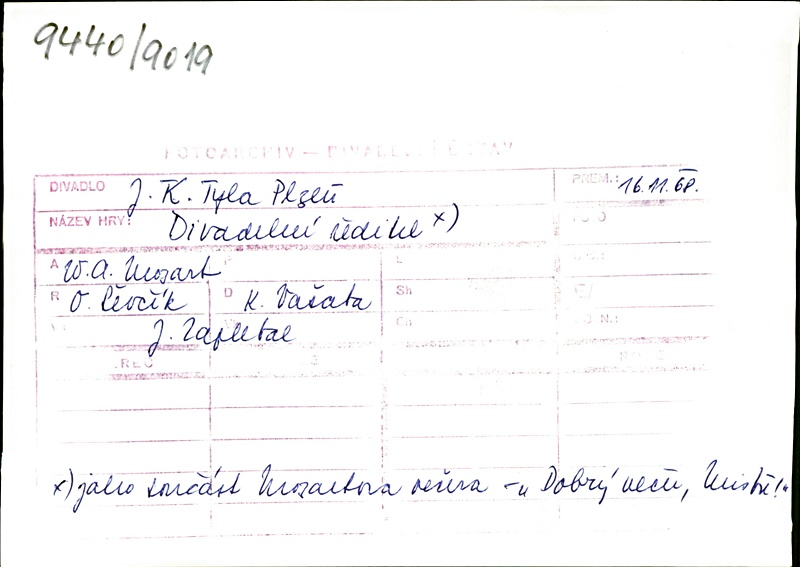 9440/9019
FOTOARCHIV – DIVADELNÍ ÚSTAV
DIVADLO J. K. Tyla Plzeň PREM.: 16.11.68.
NÁZEV HRY: Divadelní ředitel x)
A W. A. Mozart
R O. Ševčík D K. Vašata Sh
J. Zapletal Ch
REŽ
x) jako součást Mozartova večera – „Dobrý večer, Mistře!"